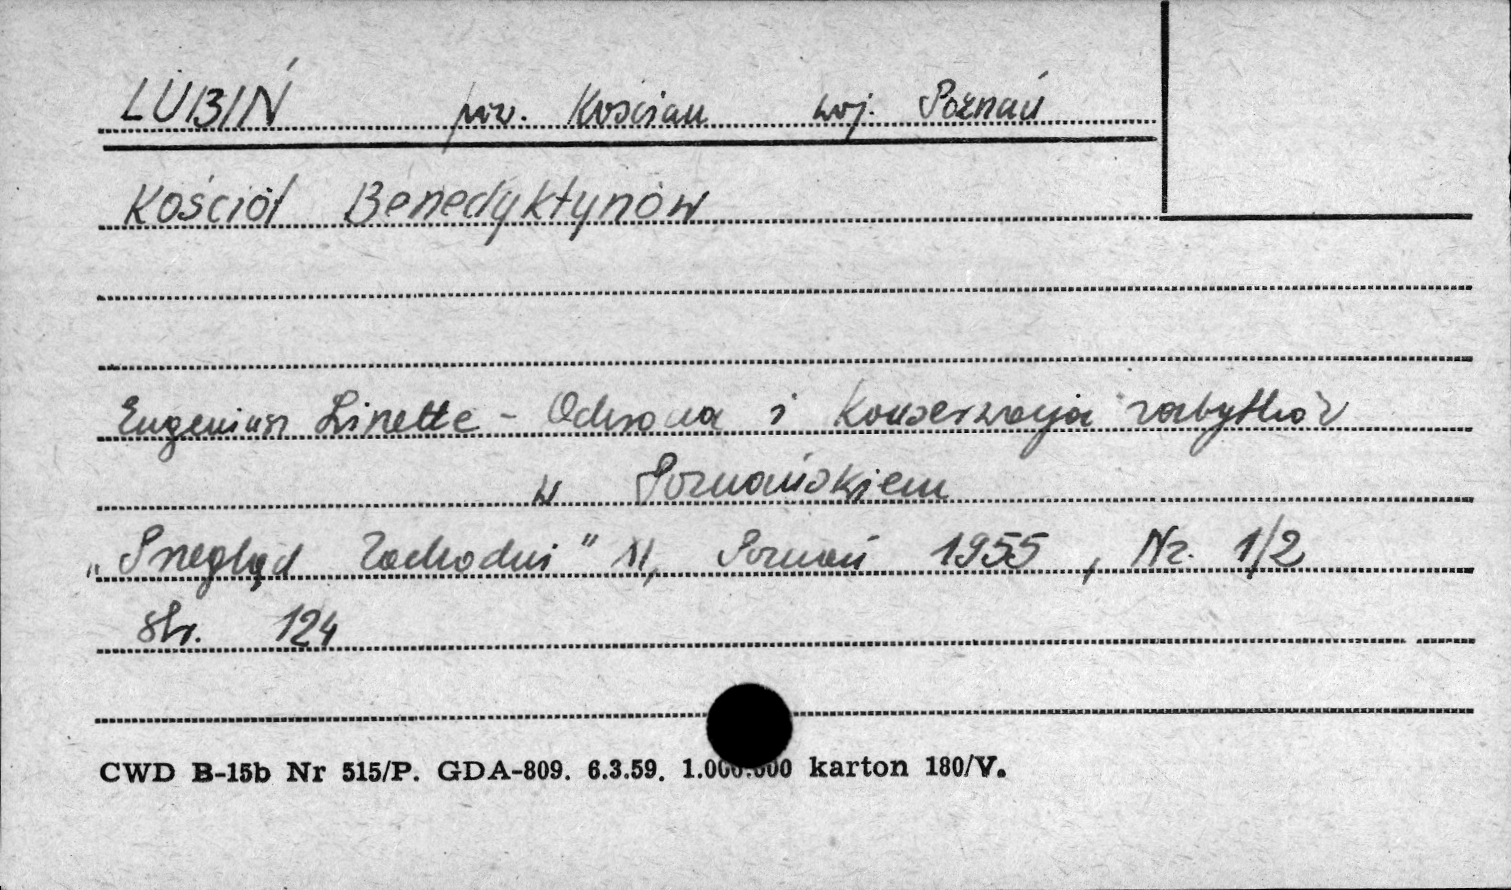 LUBIŃ pow. Kościan woj. Poznań
Kościół Benedyktynów
Eugeniusz Linette - Ochrona i konserwacja zabytków
w Poznańskiem
„Przegląd Zachodni" XI, Poznań 1955, Nr. 1/2
str. 124
CWD B-15b Nr 515/P. GDA-809. 6.3.59. 1.000.000 karton 180/V.